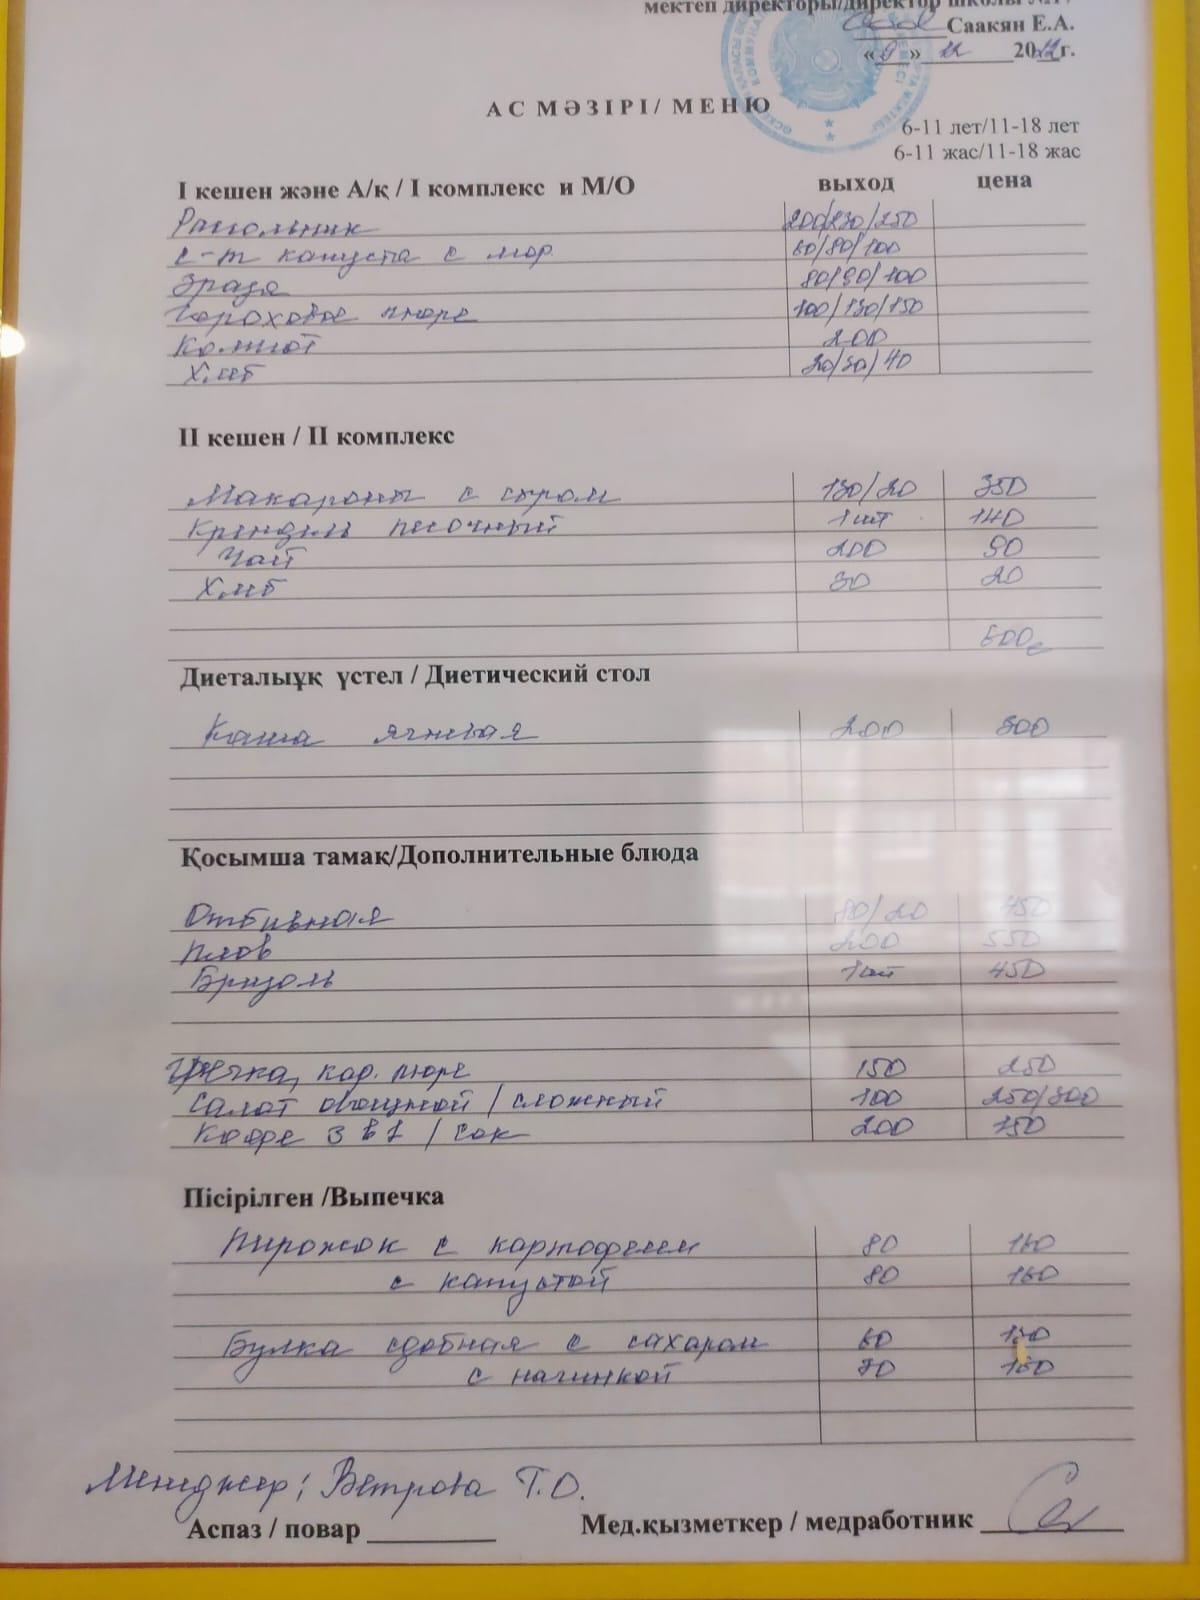 мектеп директоры/директор школы
Саакян Е.А.
«9» 12 2022г.
АС МӘЗІРІ/ МЕНЮ
6-11 лет/11-18 лет
6-11 жас/11-18 жас
I кешен және А/қ / I комплекс и М/О выход цена
Рассольник 200/230/250
с-т капуста с мор. 60/80/100
Зразя 80/90/100
Гороховое пюре 100/130/150
Компот 200
Хлеб 20/30/40
II кешен / II комплекс
Макароны с сыром 130/20 350
Крендель песочный 1 шт 140
Чай 200 90
Хлеб 30 20
600
Диеталыұқ үстел / Диетический стол
Каша ячневая 200 300
Қосымша тамақ/Дополнительные блюда
Отбивная 80/20 450
Плов 200 550
Бризоль 1 шт 450
Гречка, кар. пюре 150 250
Салат овощной / сложный 100 250/300
Кофе 3 в 1 / Сок 200 150
Пісірілген /Выпечка
Пирожок с картофелем 80 160
с капустой 80 160
Булка сдобная с сахаром 60
с начинкой 70 160
Менеджер: Ветрова Т.О.
Аспаз / повар Мед.қызметкер / медработник